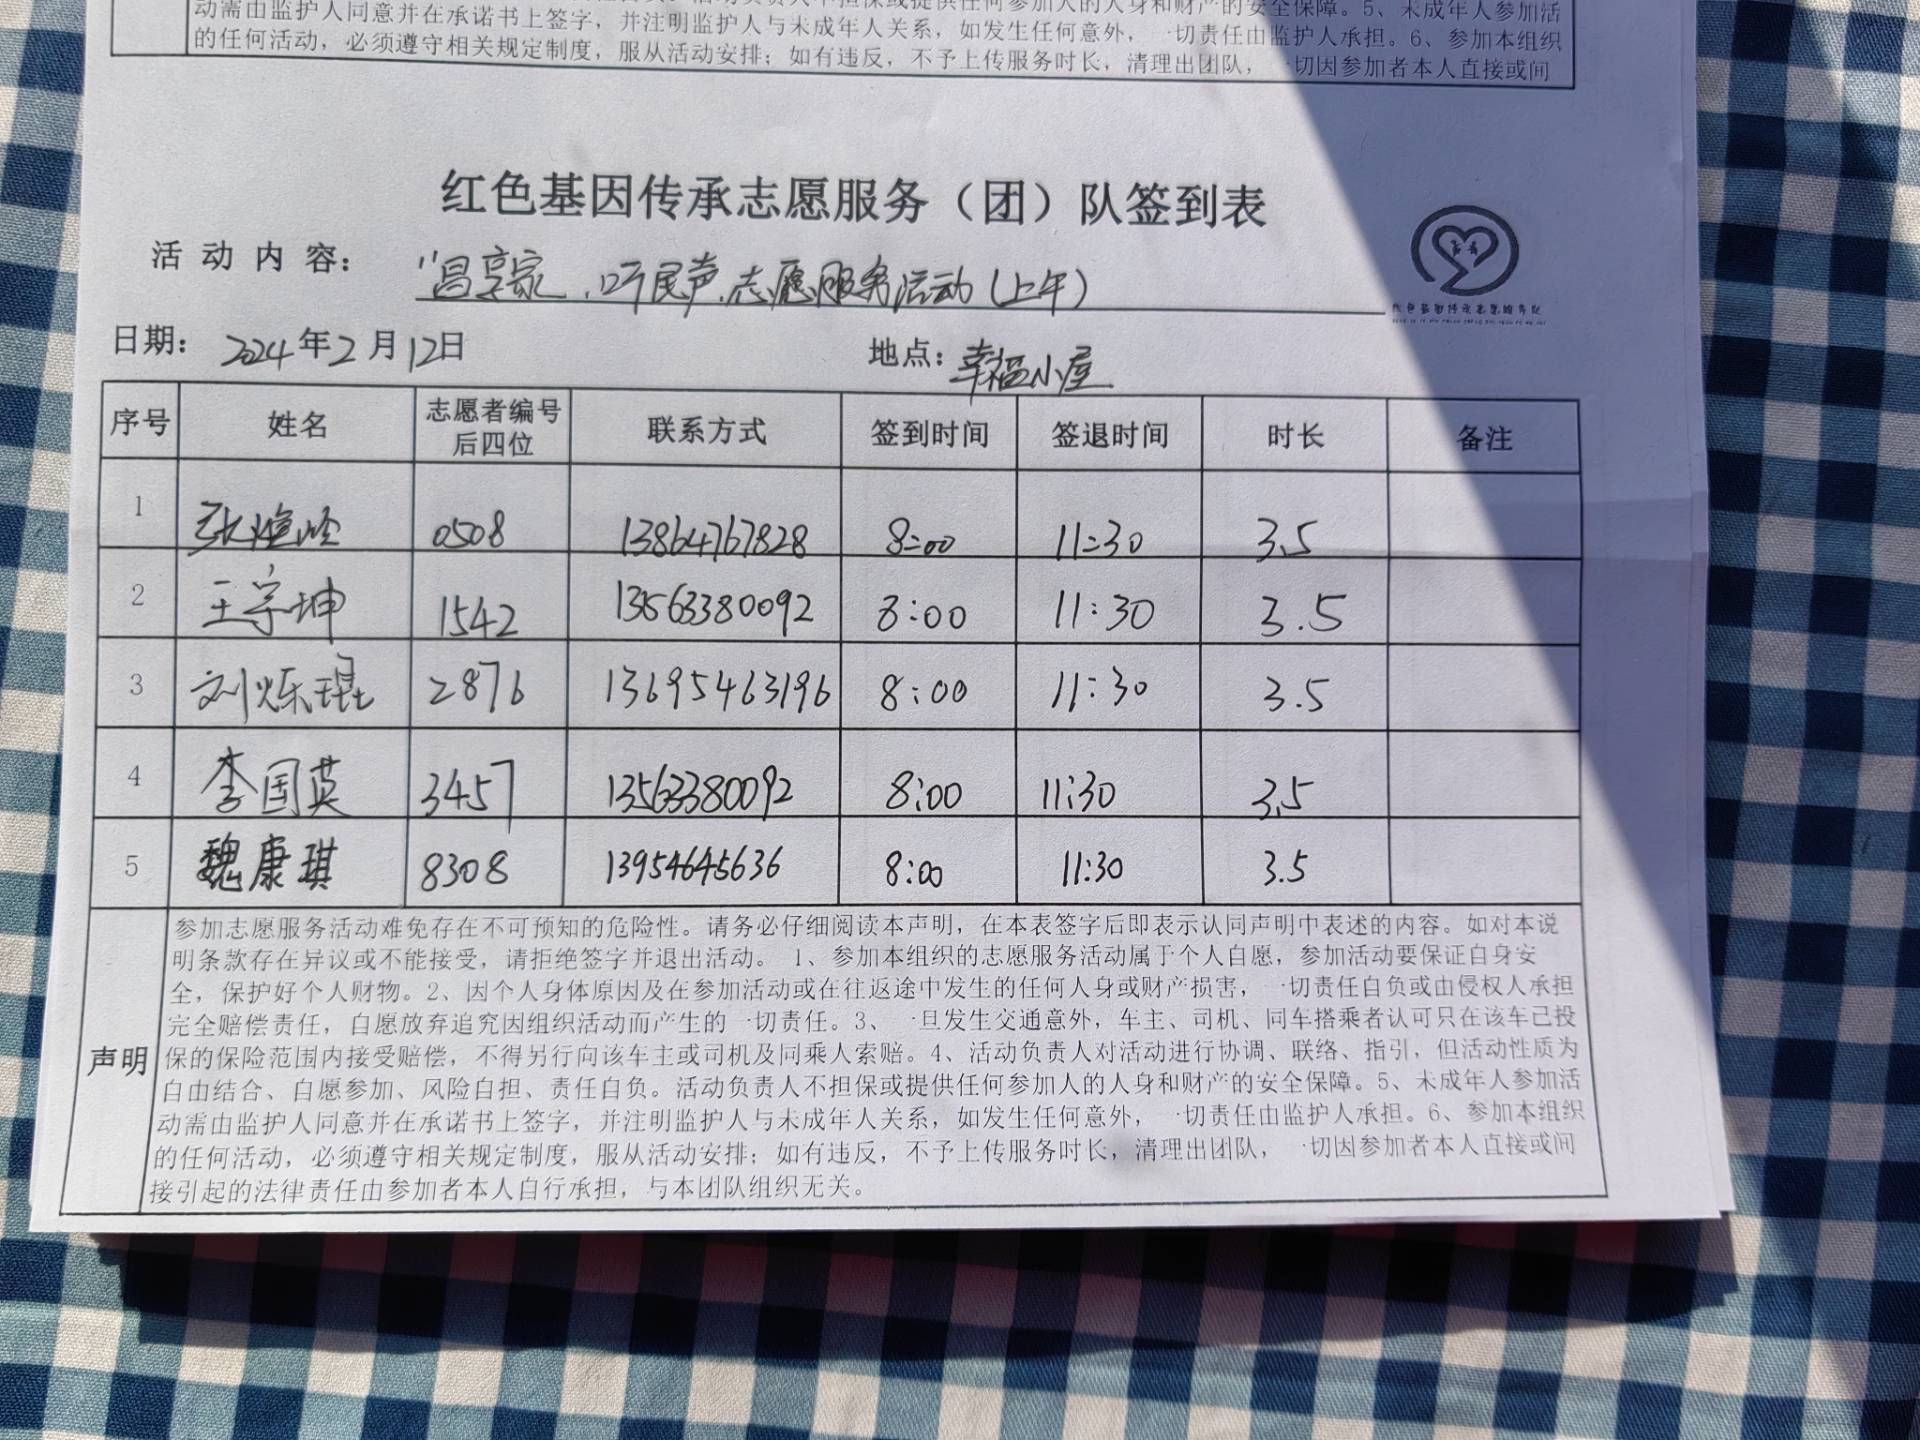 动需由监护人同意并在承诺书上签字，并注明监护人与未成年人关系，如发生任何意外，一切责任由监护人承担。6、参加本组织
的任何活动，必须遵守相关规定制度，服从活动安排；如有违反，不予上传服务时长，清理出团队，一切因参加者本人直接或间
红色基因传承志愿服务（团）队签到表
活动内容： “昌享家、听民声、志愿服务活动（上午）
红色基因传承志愿服务队
日期： 2024年2月12日 地点：幸福小屋
序号 姓名 志愿者编号后四位 联系方式 签到时间 签退时间 时长 备注
1 张 0508 13864767828 8:00 11:30 3.5
2 王宇坤 1542 13563380092 8:00 11:30 3.5
3 刘烁琨 2876 13695463196 8:00 11:30 3.5
4 李国英 3457 13563380092 8:00 11:30 3.5
5 魏康琪 8308 13954645636 8:00 11:30 3.5
声明
参加志愿服务活动难免存在不可预知的危险性。请务必仔细阅读本声明，在本表签字后即表示认同声明中表述的内容。如对本说
明条款存在异议或不能接受，请拒绝签字并退出活动。 1、参加本组织的志愿服务活动属于个人自愿，参加活动要保证自身安
全，保护好个人财物。2、因个人身体原因及在参加活动或在往返途中发生的任何人身或财产损害，一切责任自负或由侵权人承担
完全赔偿责任，自愿放弃追究因组织活动而产生的一切责任。3、一旦发生交通意外，车主、司机、同车搭乘者认可只在该车已投
保的保险范围内接受赔偿，不得另行向该车主或司机及同乘人索赔。4、活动负责人对活动进行协调、联络、指引，但活动性质为
自由结合、自愿参加、风险自担、责任自负。活动负责人不担保或提供任何参加人的人身和财产的安全保障。5、未成年人参加活
动需由监护人同意并在承诺书上签字，并注明监护人与未成年人关系，如发生任何意外，一切责任由监护人承担。6、参加本组织
的任何活动，必须遵守相关规定制度，服从活动安排；如有违反，不予上传服务时长，清理出团队，一切因参加者本人直接或间
接引起的法律责任由参加者本人自行承担，与本团队组织无关。